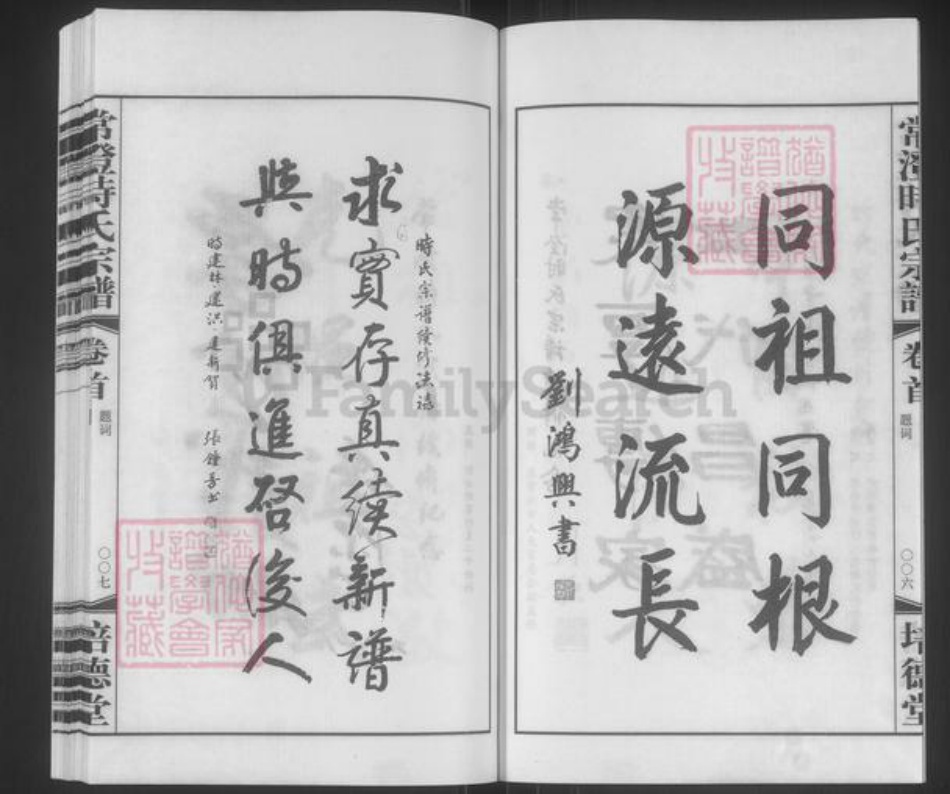 常澄時氏宗譜
卷首
题词
〇〇六
培德堂
同祖同根
源遠流長
劉鴻興書
FamilySearch
時氏宗谱續修法誌
求實存真續新譜
與時俱進啓後人
時建林建洪建新賀
張鐘善书
常澄時氏宗譜
卷首
题词
〇〇七
培德堂